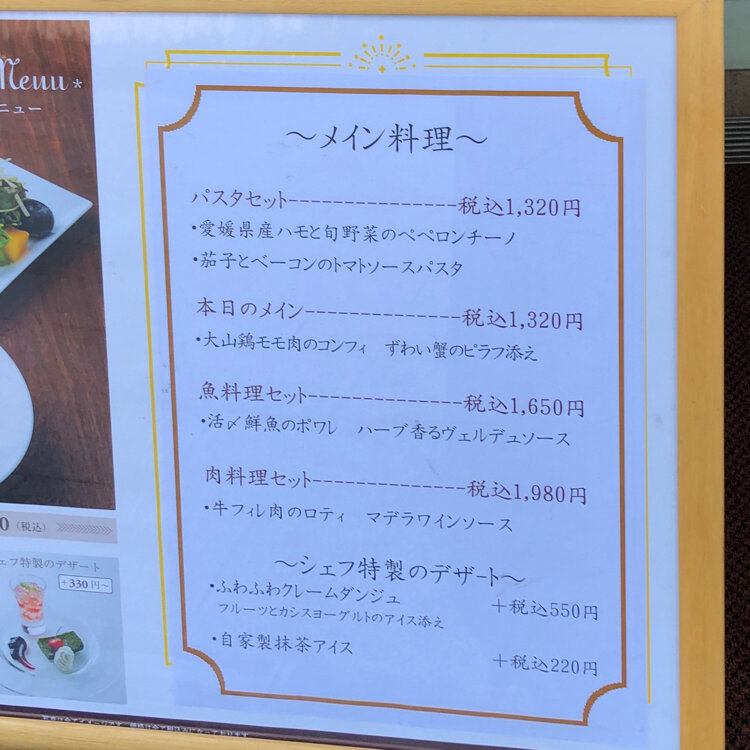 Menu*
ニュー
0(税込)
ェフ特製のデザート
+330円~
～メイン料理～
パスタセット---------------税込1,320円
・愛媛県産ハモと旬野菜のペペロンチーノ
・茄子とベーコンのトマトソースパスタ
本日のメイン--------------税込1,320円
・大山鶏モモ肉のコンフィ　ずわい蟹のピラフ添え
魚料理セット--------------税込1,650円
・活〆鮮魚のポワレ　ハーブ香るヴェルデュソース
肉料理セット--------------税込1,980円
・牛フィレ肉のロティ　マデラワインソース
～シェフ特製のデザート～
・ふわふわクレームダンジュ　+税込550円
フルーツとカシスヨーグルトのアイス添え
・自家製抹茶アイス　+税込220円